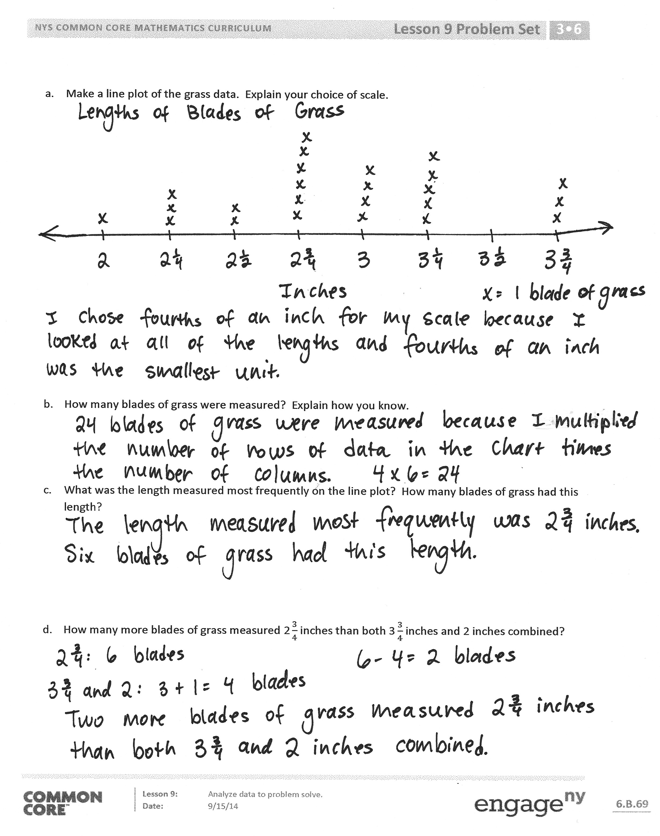 NYS COMMON CORE MATHEMATICS CURRICULUM Lesson 9 Problem Set 3•6
a. Make a line plot of the grass data. Explain your choice of scale.
Lengths of Blades of Grass
x
x
x x x
x x x x
x x x x x
x x x x x x
x x x x x x x
2 2 1/4 2 1/2 2 3/4 3 3 1/4 3 1/2 3 3/4
Inches x = 1 blade of grass
I chose fourths of an inch for my scale because I
looked at all of the lengths and fourths of an inch
was the smallest unit.
b. How many blades of grass were measured? Explain how you know.
24 blades of grass were measured because I multiplied
the number of rows of data in the chart times
the number of columns. 4 x 6 = 24
c. What was the length measured most frequently on the line plot? How many blades of grass had this
length?
The length measured most frequently was 2 3/4 inches.
Six blades of grass had this length.
d. How many more blades of grass measured 2 3/4 inches than both 3 3/4 inches and 2 inches combined?
2 3/4: 6 blades 6 - 4 = 2 blades
3 3/4 and 2: 3 + 1 = 4 blades
Two more blades of grass measured 2 3/4 inches
than both 3 3/4 and 2 inches combined.
COMMON CORE™ Lesson 9: Analyze data to problem solve.
Date: 9/15/14 engage ny 6.B.69